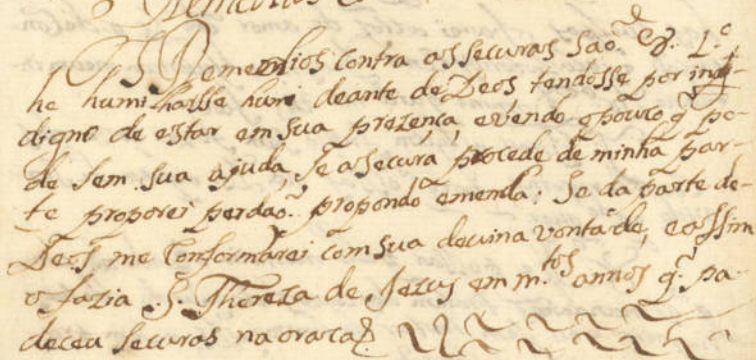 Os Remedios contra as securas são
he humilhasse hum deante de Deos tendosse por in-
digno de estar em sua prezença, e vendo o pouco q̃ po-
de sem sua ajuda, se a secura procede de minha par-
te proporei perdão propondo emenda: Se da parte de
Deos me Conformarei com sua devina vontade, e assim
o fazia S. Thereza de Jezus em m.tos annos q̃ pa-
deceu securas na oração